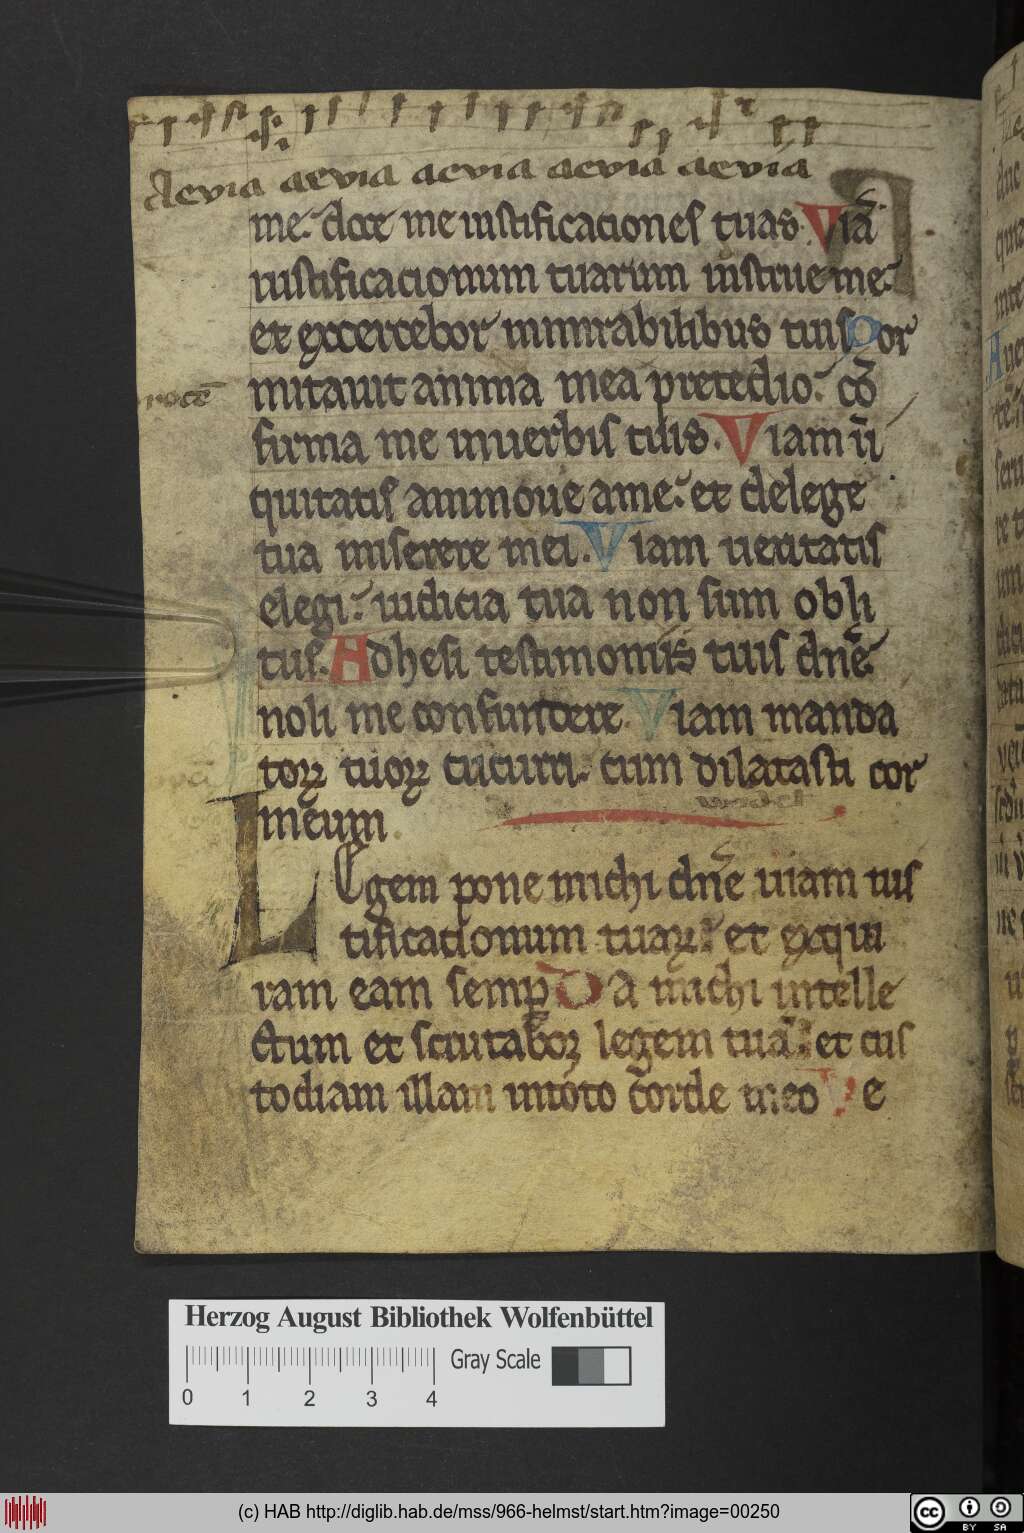 Aevia aevia aevia aevia aevia
me. doce me iustificaciones tuas. Viā
iustificacionum tuarum instrue me.
et exercebor inmirabilibus tuis Dor
mitauit anima mea pretedio. cō
firma me inuerbis tuis. Viam īi
quitatis ammoue ame. et delege
tua miserere mei. Viam ueritatis
elegi. iudicia tua non sum obli
tus. Adhesi testimoniis tuis dn̄e
noli me confundere Viam manda
toꝝ tuoꝝ cucurri. cum dilatasti cor
meum
LEgem pone michi dn̄e uiam ius
tificationum tuaꝝ. et exqui
ram eam semꝑ Da michi intelle
ctum et scrutaboꝛ legem tuā. et cus
todiam illam intoto corde meo e
Herzog August Bibliothek Wolfenbüttel
Gray Scale
0 1 2 3 4
(c) HAB http://diglib.hab.de/mss/966-helmst/start.htm?image=00250
cc BY SA